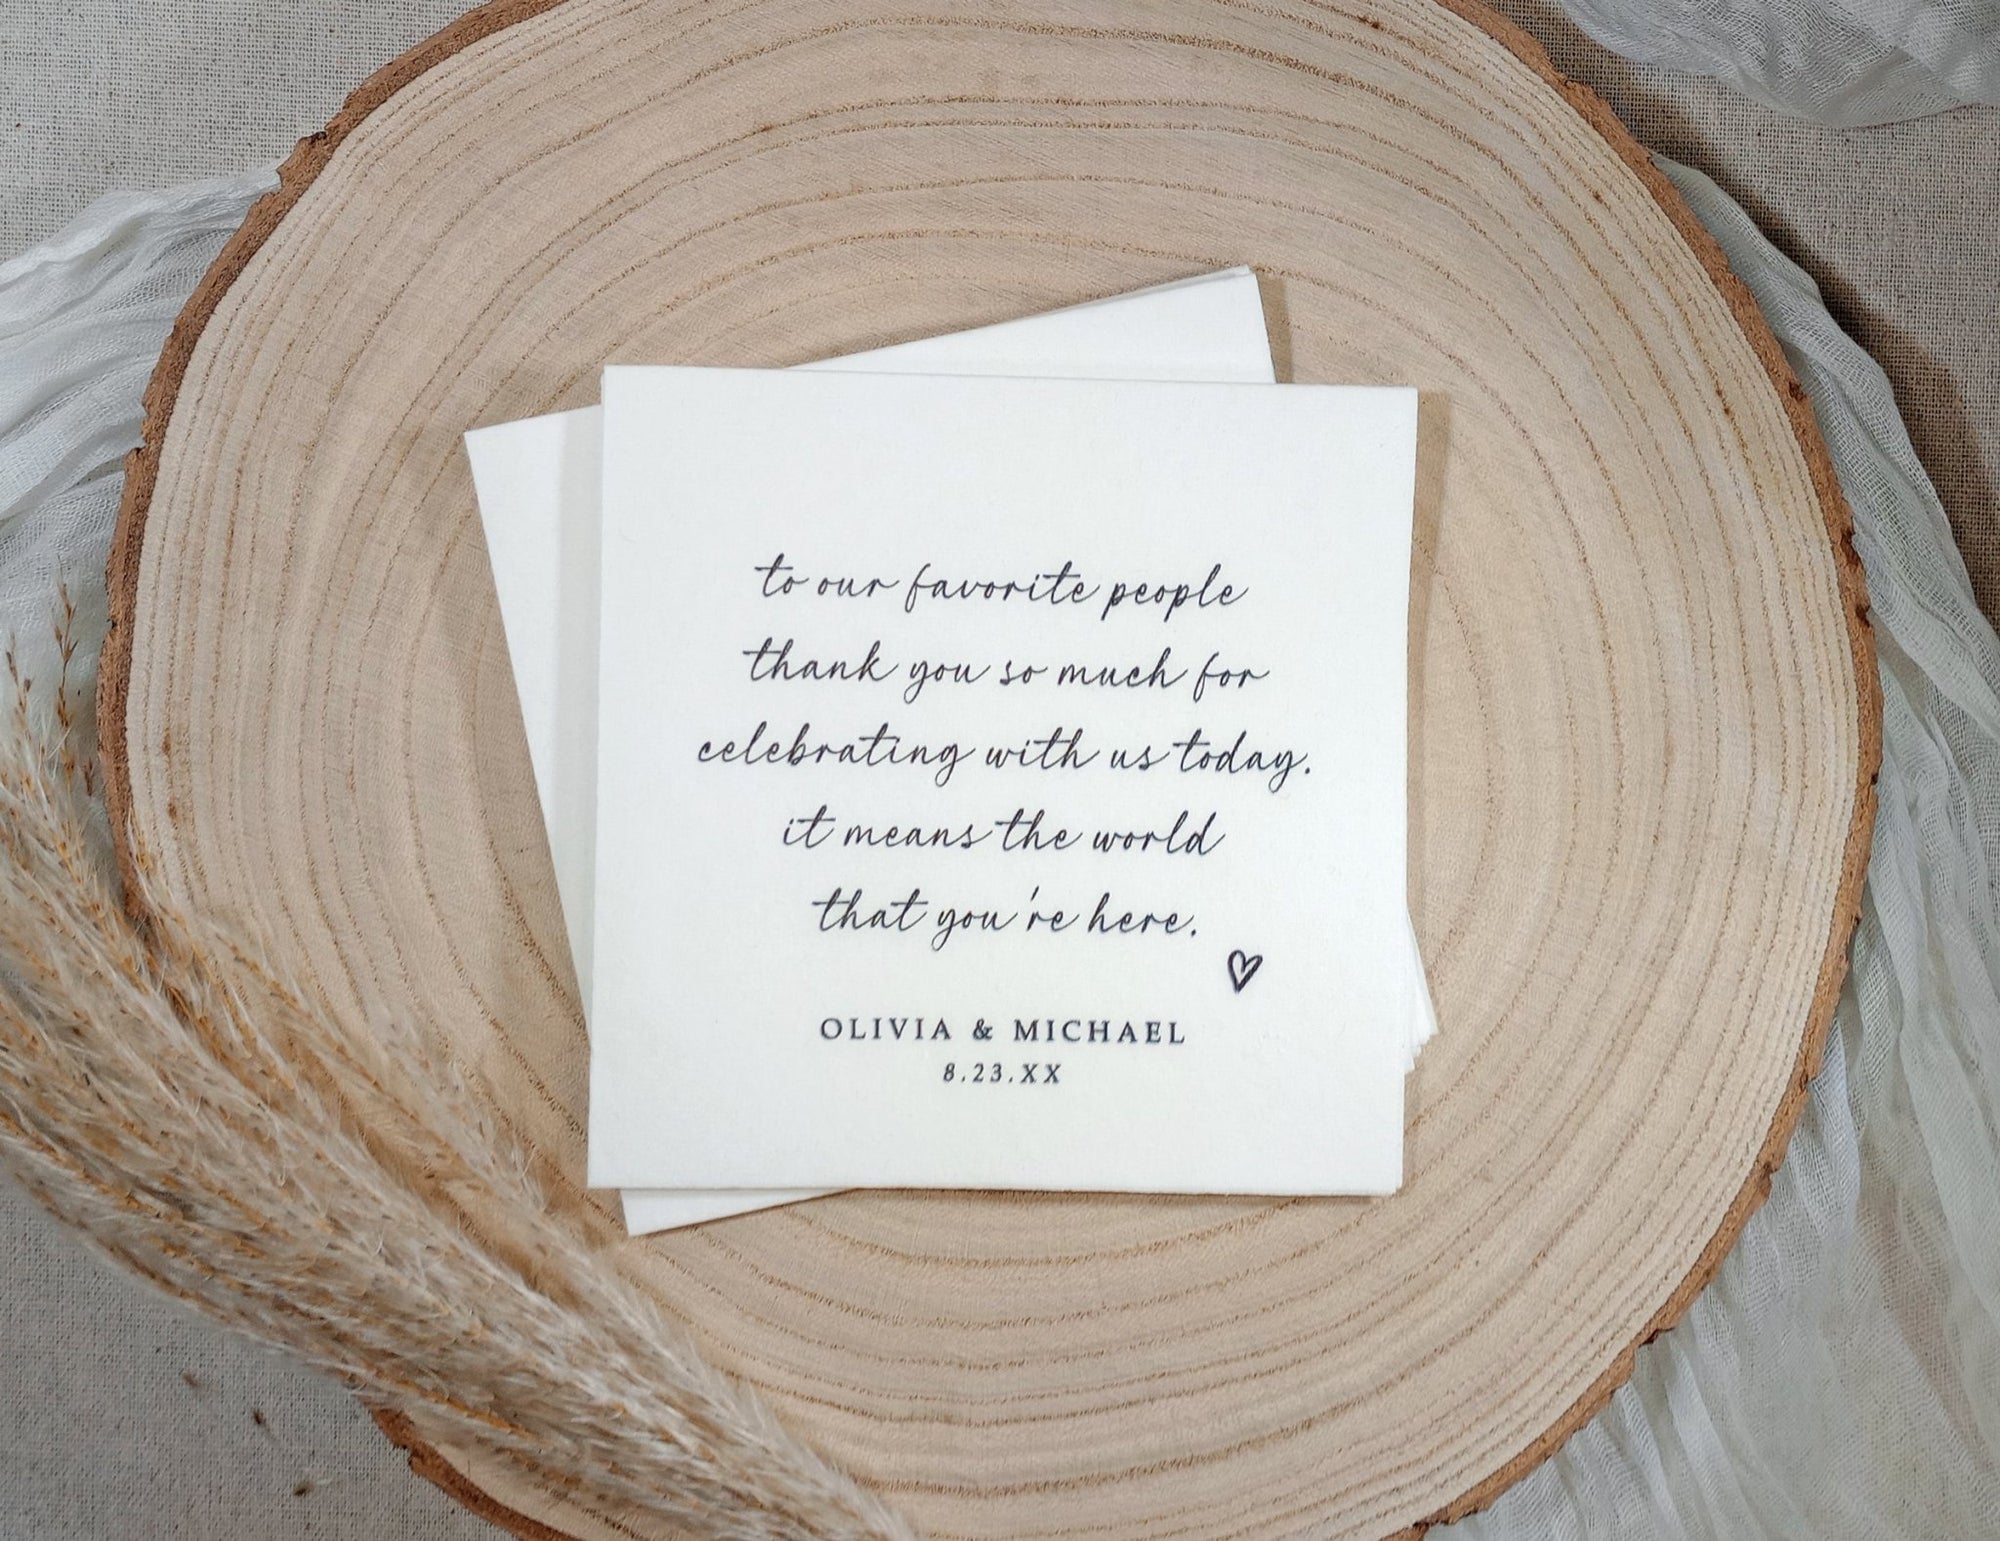 to our favorite people
thank you so much for
celebrating with us today.
it means the world
that you're here.
OLIVIA & MICHAEL
8.23.XX